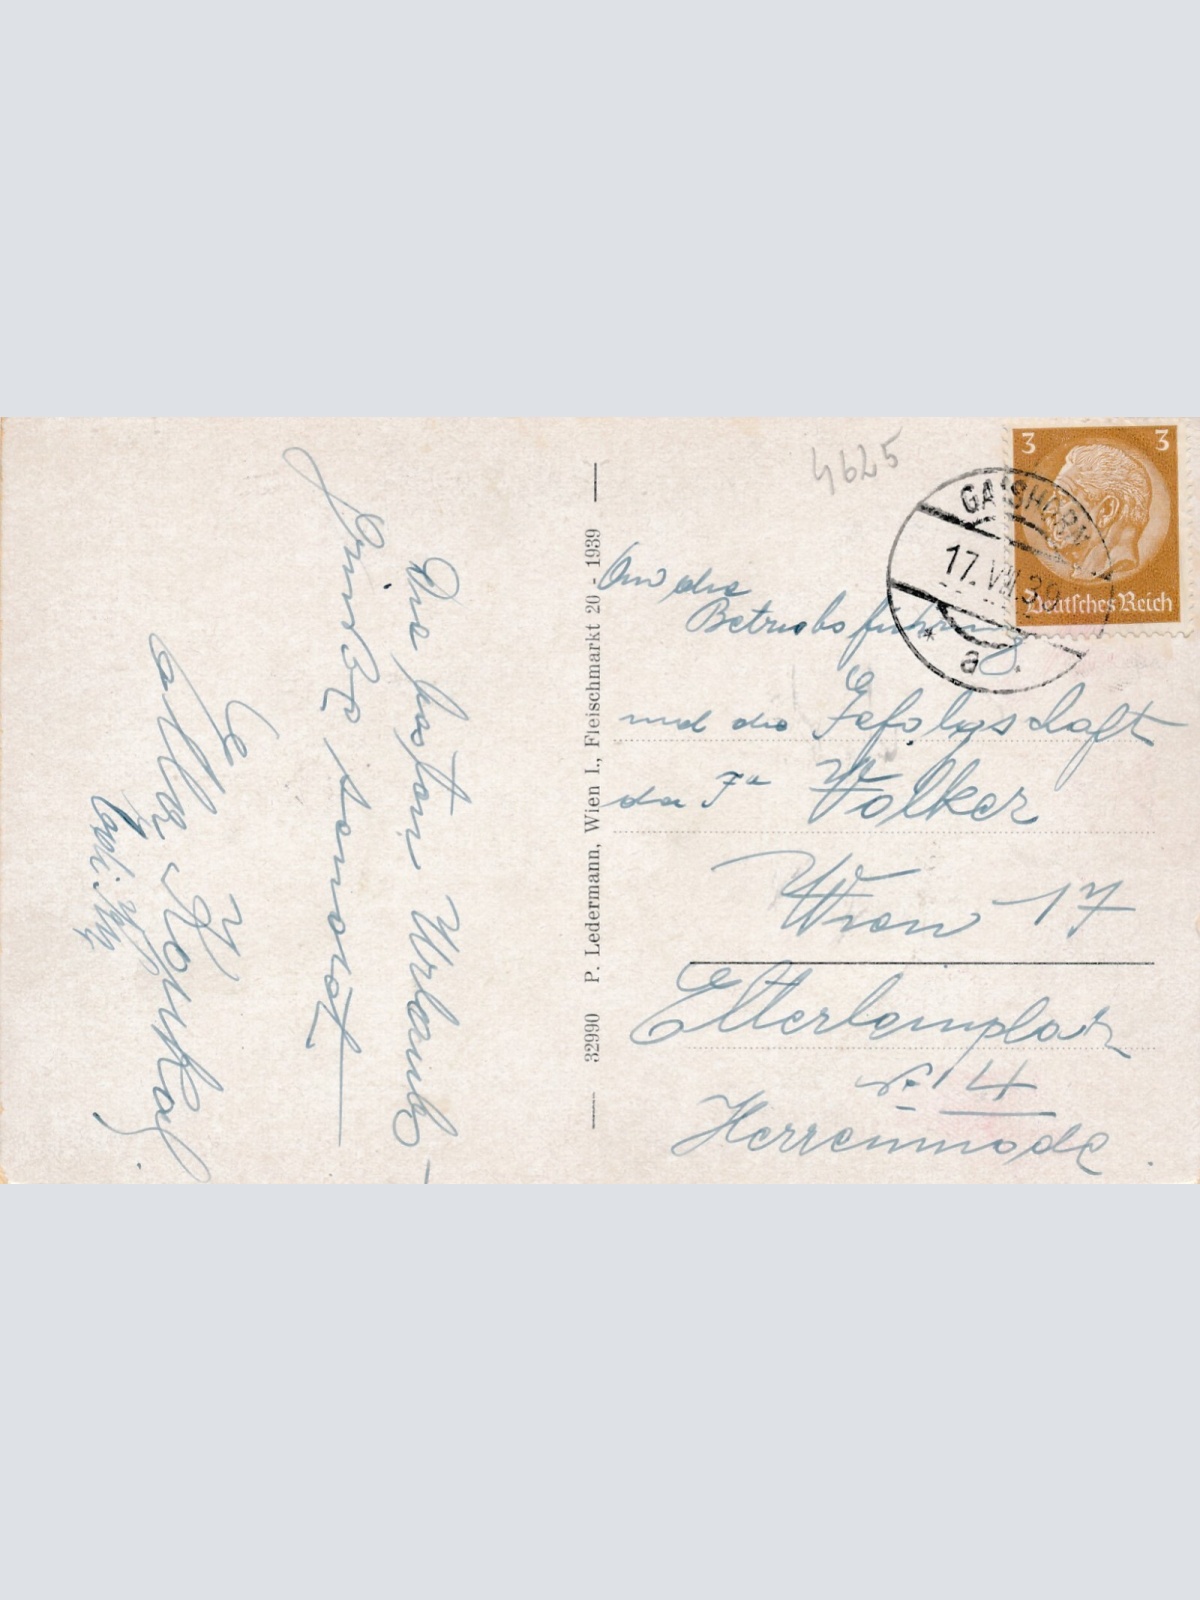 Die besten Urlaubs-
grüsse sendet
4625
3 3
Deutsches Reich
GAISHORN
17.VII.39
* a .
32990 P. Ledermann, Wien I., Fleischmarkt 20 - 1939
An die
Betriebsführung
und die Gefolgschaft
der Fa Volker
Wien 17
Elterleinplatz
Nr. 14
Herrenmode.